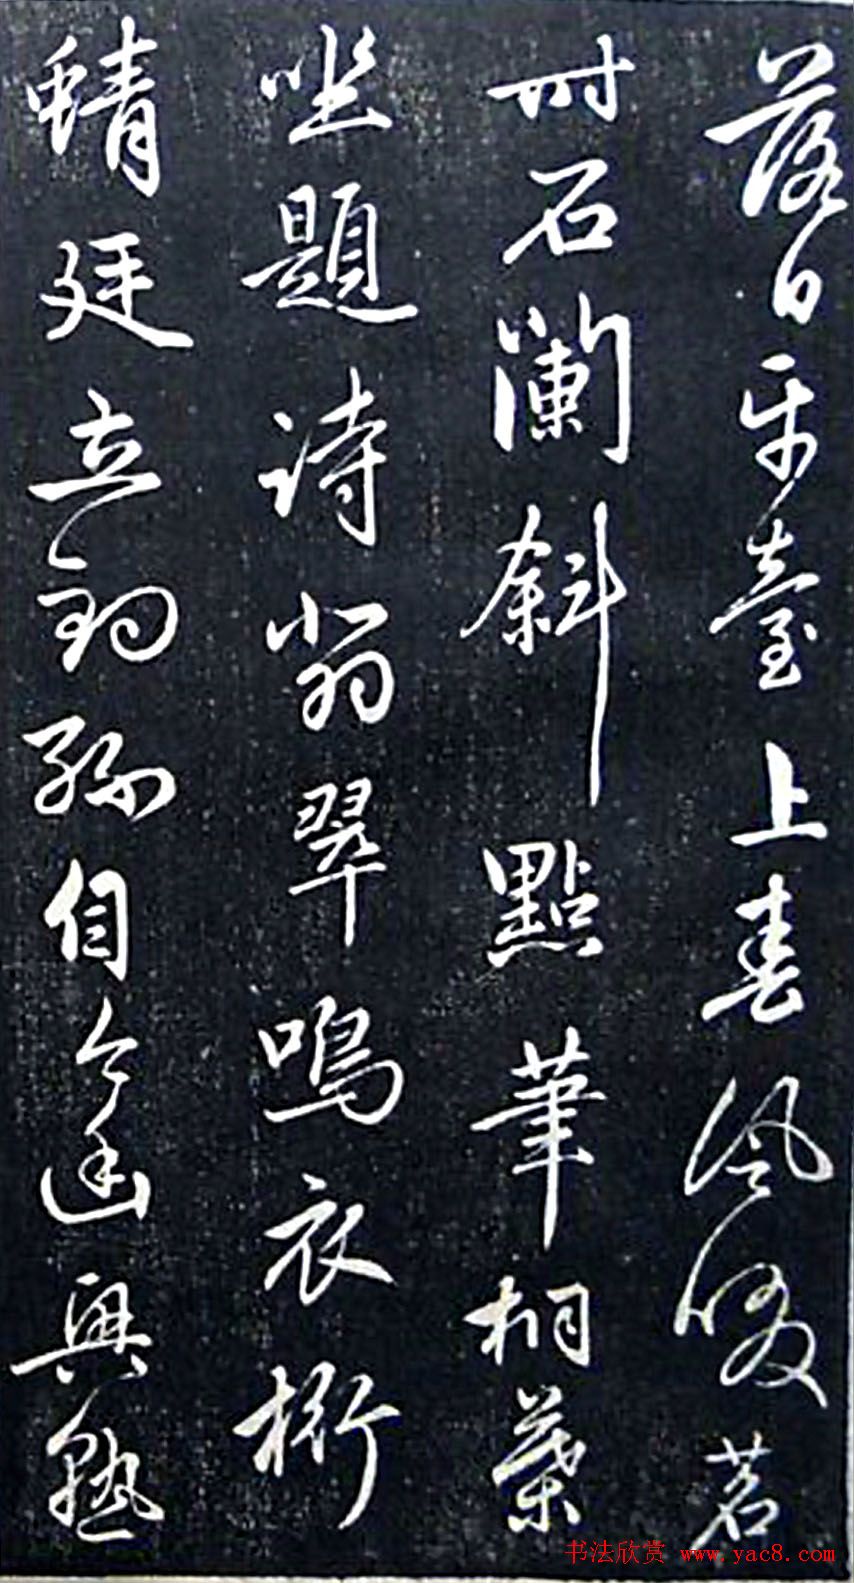 落日平臺上春風啜茗
時石闌斜點筆桐葉
坐題詩翡翠鳴衣桁
蜻廷立釣絲自今幽興熟
书法欣赏 www.yac8.com